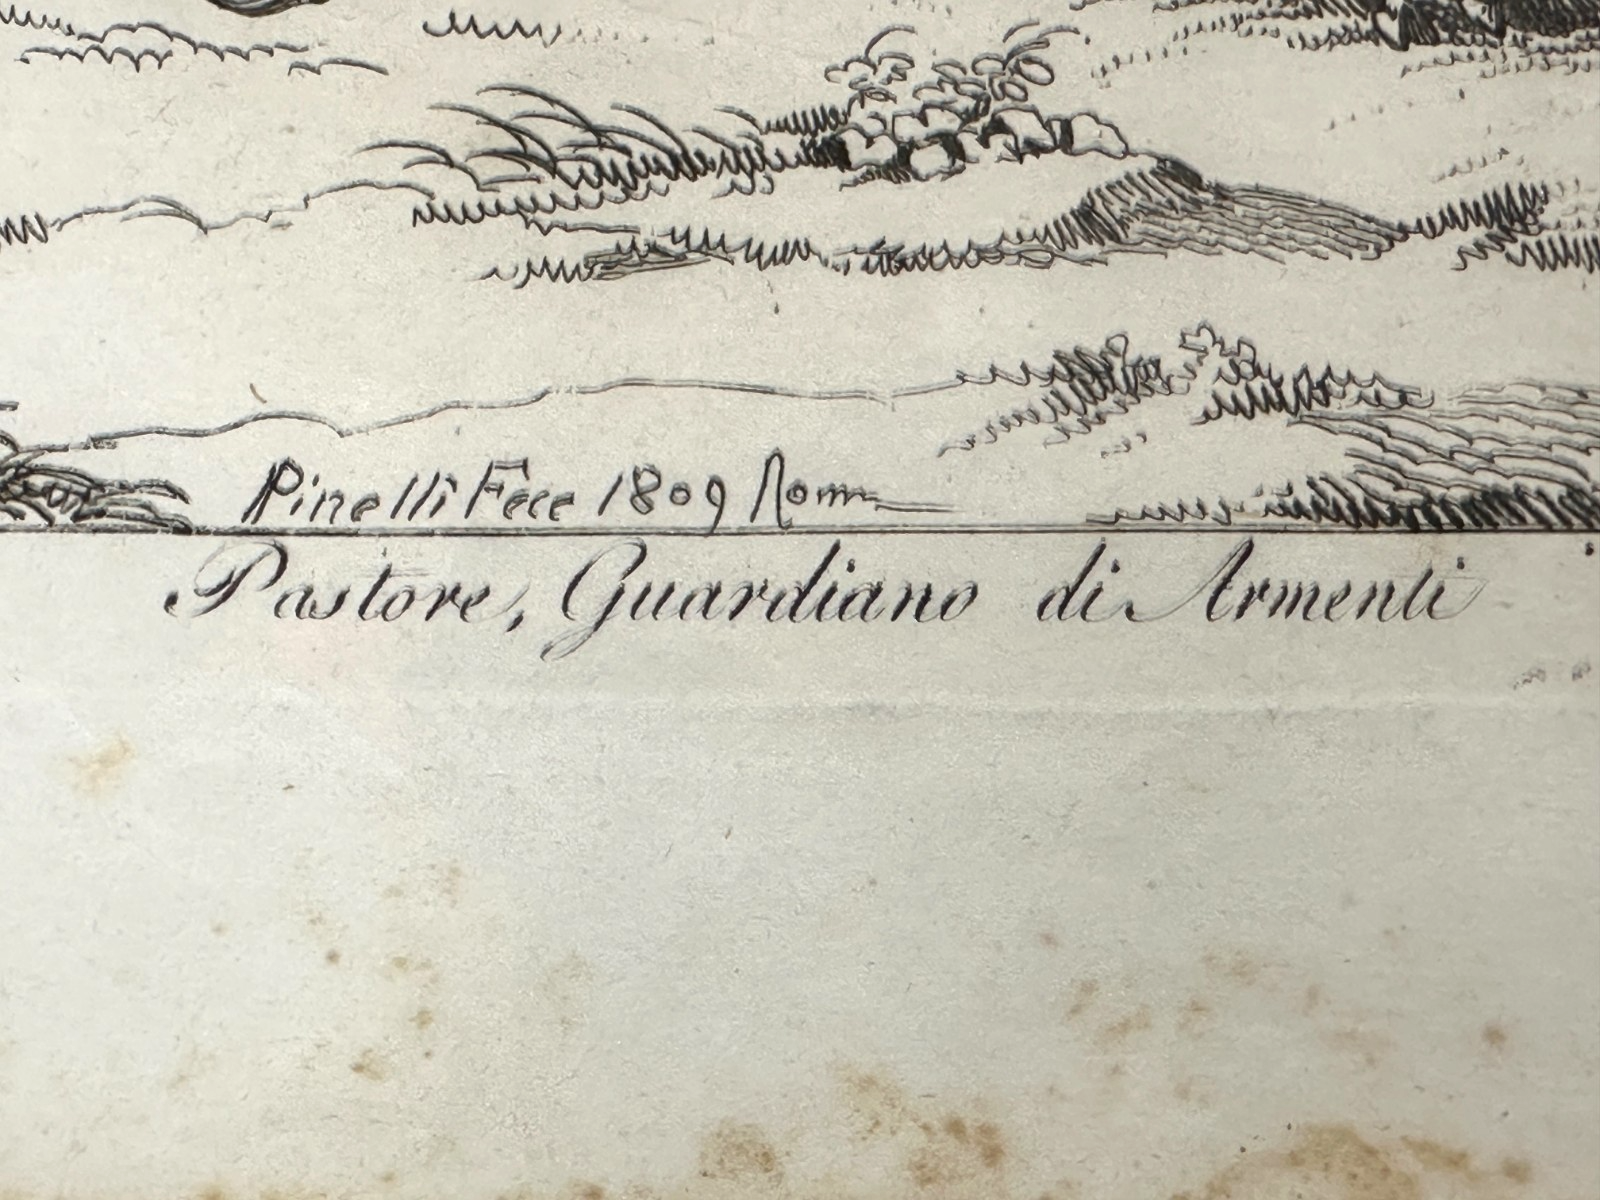 Pinelli Fece 1809 Roma
Pastore, Guardiano di Armenti